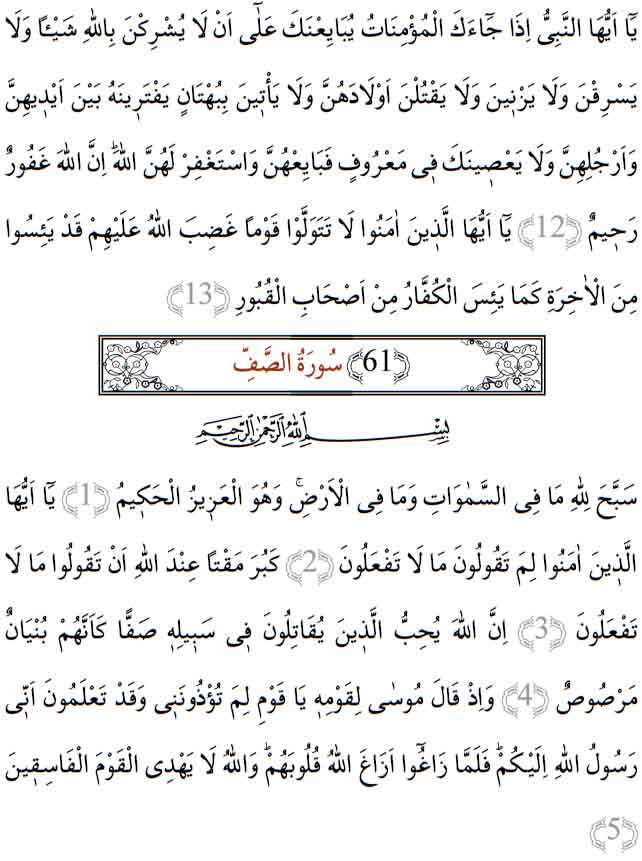 يَٓا اَيُّهَا النَّبِيُّ اِذَا جَٓاءَكَ الْمُؤْمِنَاتُ يُبَايِعْنَكَ عَلٰٓى اَنْ لَا يُشْرِكْنَ بِاللّٰهِ شَيْـًٔا وَلَا
يَسْرِقْنَ وَلَا يَزْن۪ينَ وَلَا يَقْتُلْنَ اَوْلَادَهُنَّ وَلَا يَأْت۪ينَ بِبُهْتَانٍ يَفْتَر۪ينَهُ بَيْنَ اَيْد۪يهِنَّ
وَاَرْجُلِهِنَّ وَلَا يَعْص۪ينَكَ ف۪ي مَعْرُوفٍ فَبَايِعْهُنَّ وَاسْتَغْفِرْ لَهُنَّ اللّٰهَۜ اِنَّ اللّٰهَ غَفُورٌ
رَح۪يمٌ ﴿12﴾ يَٓا اَيُّهَا الَّذ۪ينَ اٰمَنُوا لَا تَتَوَلَّوْا قَوْمًا غَضِبَ اللّٰهُ عَلَيْهِمْ قَدْ يَئِسُوا
مِنَ الْاٰخِرَةِ كَمَا يَئِسَ الْكُفَّارُ مِنْ اَصْحَابِ الْقُبُورِ ﴿13﴾
﴿61﴾ سُورَةُ الصَّفِّ
بِسْمِ اللّٰهِ الرَّحْمٰنِ الرَّح۪يمِ
سَبَّحَ لِلّٰهِ مَا فِي السَّمٰوَاتِ وَمَا فِي الْاَرْضِۚ وَهُوَ الْعَز۪يزُ الْحَك۪يمُ ﴿1﴾ يَٓا اَيُّهَا
الَّذ۪ينَ اٰمَنُوا لِمَ تَقُولُونَ مَا لَا تَفْعَلُونَ ﴿2﴾ كَبُرَ مَقْتًا عِنْدَ اللّٰهِ اَنْ تَقُولُوا مَا لَا
تَفْعَلُونَ ﴿3﴾ اِنَّ اللّٰهَ يُحِبُّ الَّذ۪ينَ يُقَاتِلُونَ ف۪ي سَب۪يلِه۪ صَفًّا كَاَنَّهُمْ بُنْيَانٌ
مَرْصُوصٌ ﴿4﴾ وَاِذْ قَالَ مُوسٰى لِقَوْمِه۪ يَا قَوْمِ لِمَ تُؤْذُونَن۪ي وَقَدْ تَعْلَمُونَ اَنّ۪ي
رَسُولُ اللّٰهِ اِلَيْكُمْۜ فَلَمَّا زَاغُٓوا اَزَاغَ اللّٰهُ قُلُوبَهُمْۜ وَاللّٰهُ لَا يَهْدِي الْقَوْمَ الْفَاسِق۪ينَ
﴿5﴾